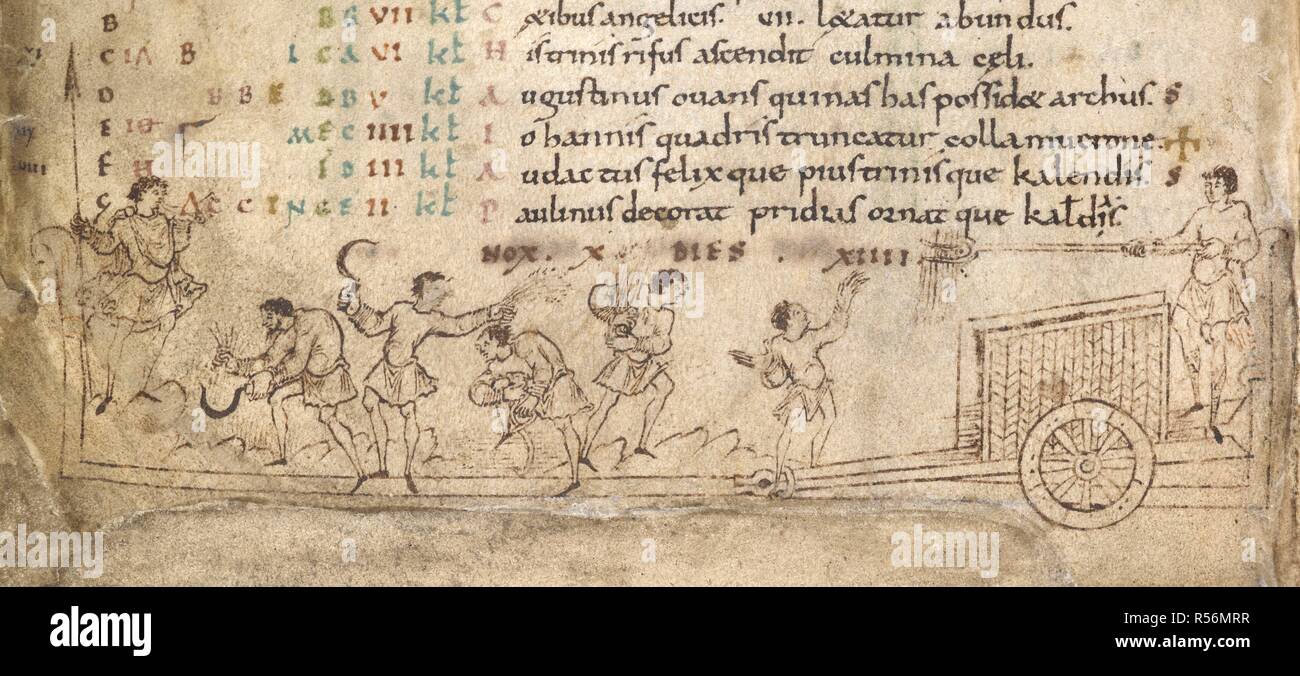 B B A VII kł C œibus angelicis. VII. lœatur abundus.
C IA B I C A VI kł H istrinis rifus ascendit culmina cęli.
D B B E B B V kł A ugustinus ovans quinas has possidœ arthus. S
E M E C IIII kł I ohannis quadris truncatur colla mucrone.
F H I D III kł A udactus felix que pius trinisque kalendis. S
G A C C I N G E II kł P aulinus decorat pridias ornat que kaldis.
NOX. X DIES. XIIII
alamy
alamy
Image ID: R56MRR
www.alamy.com